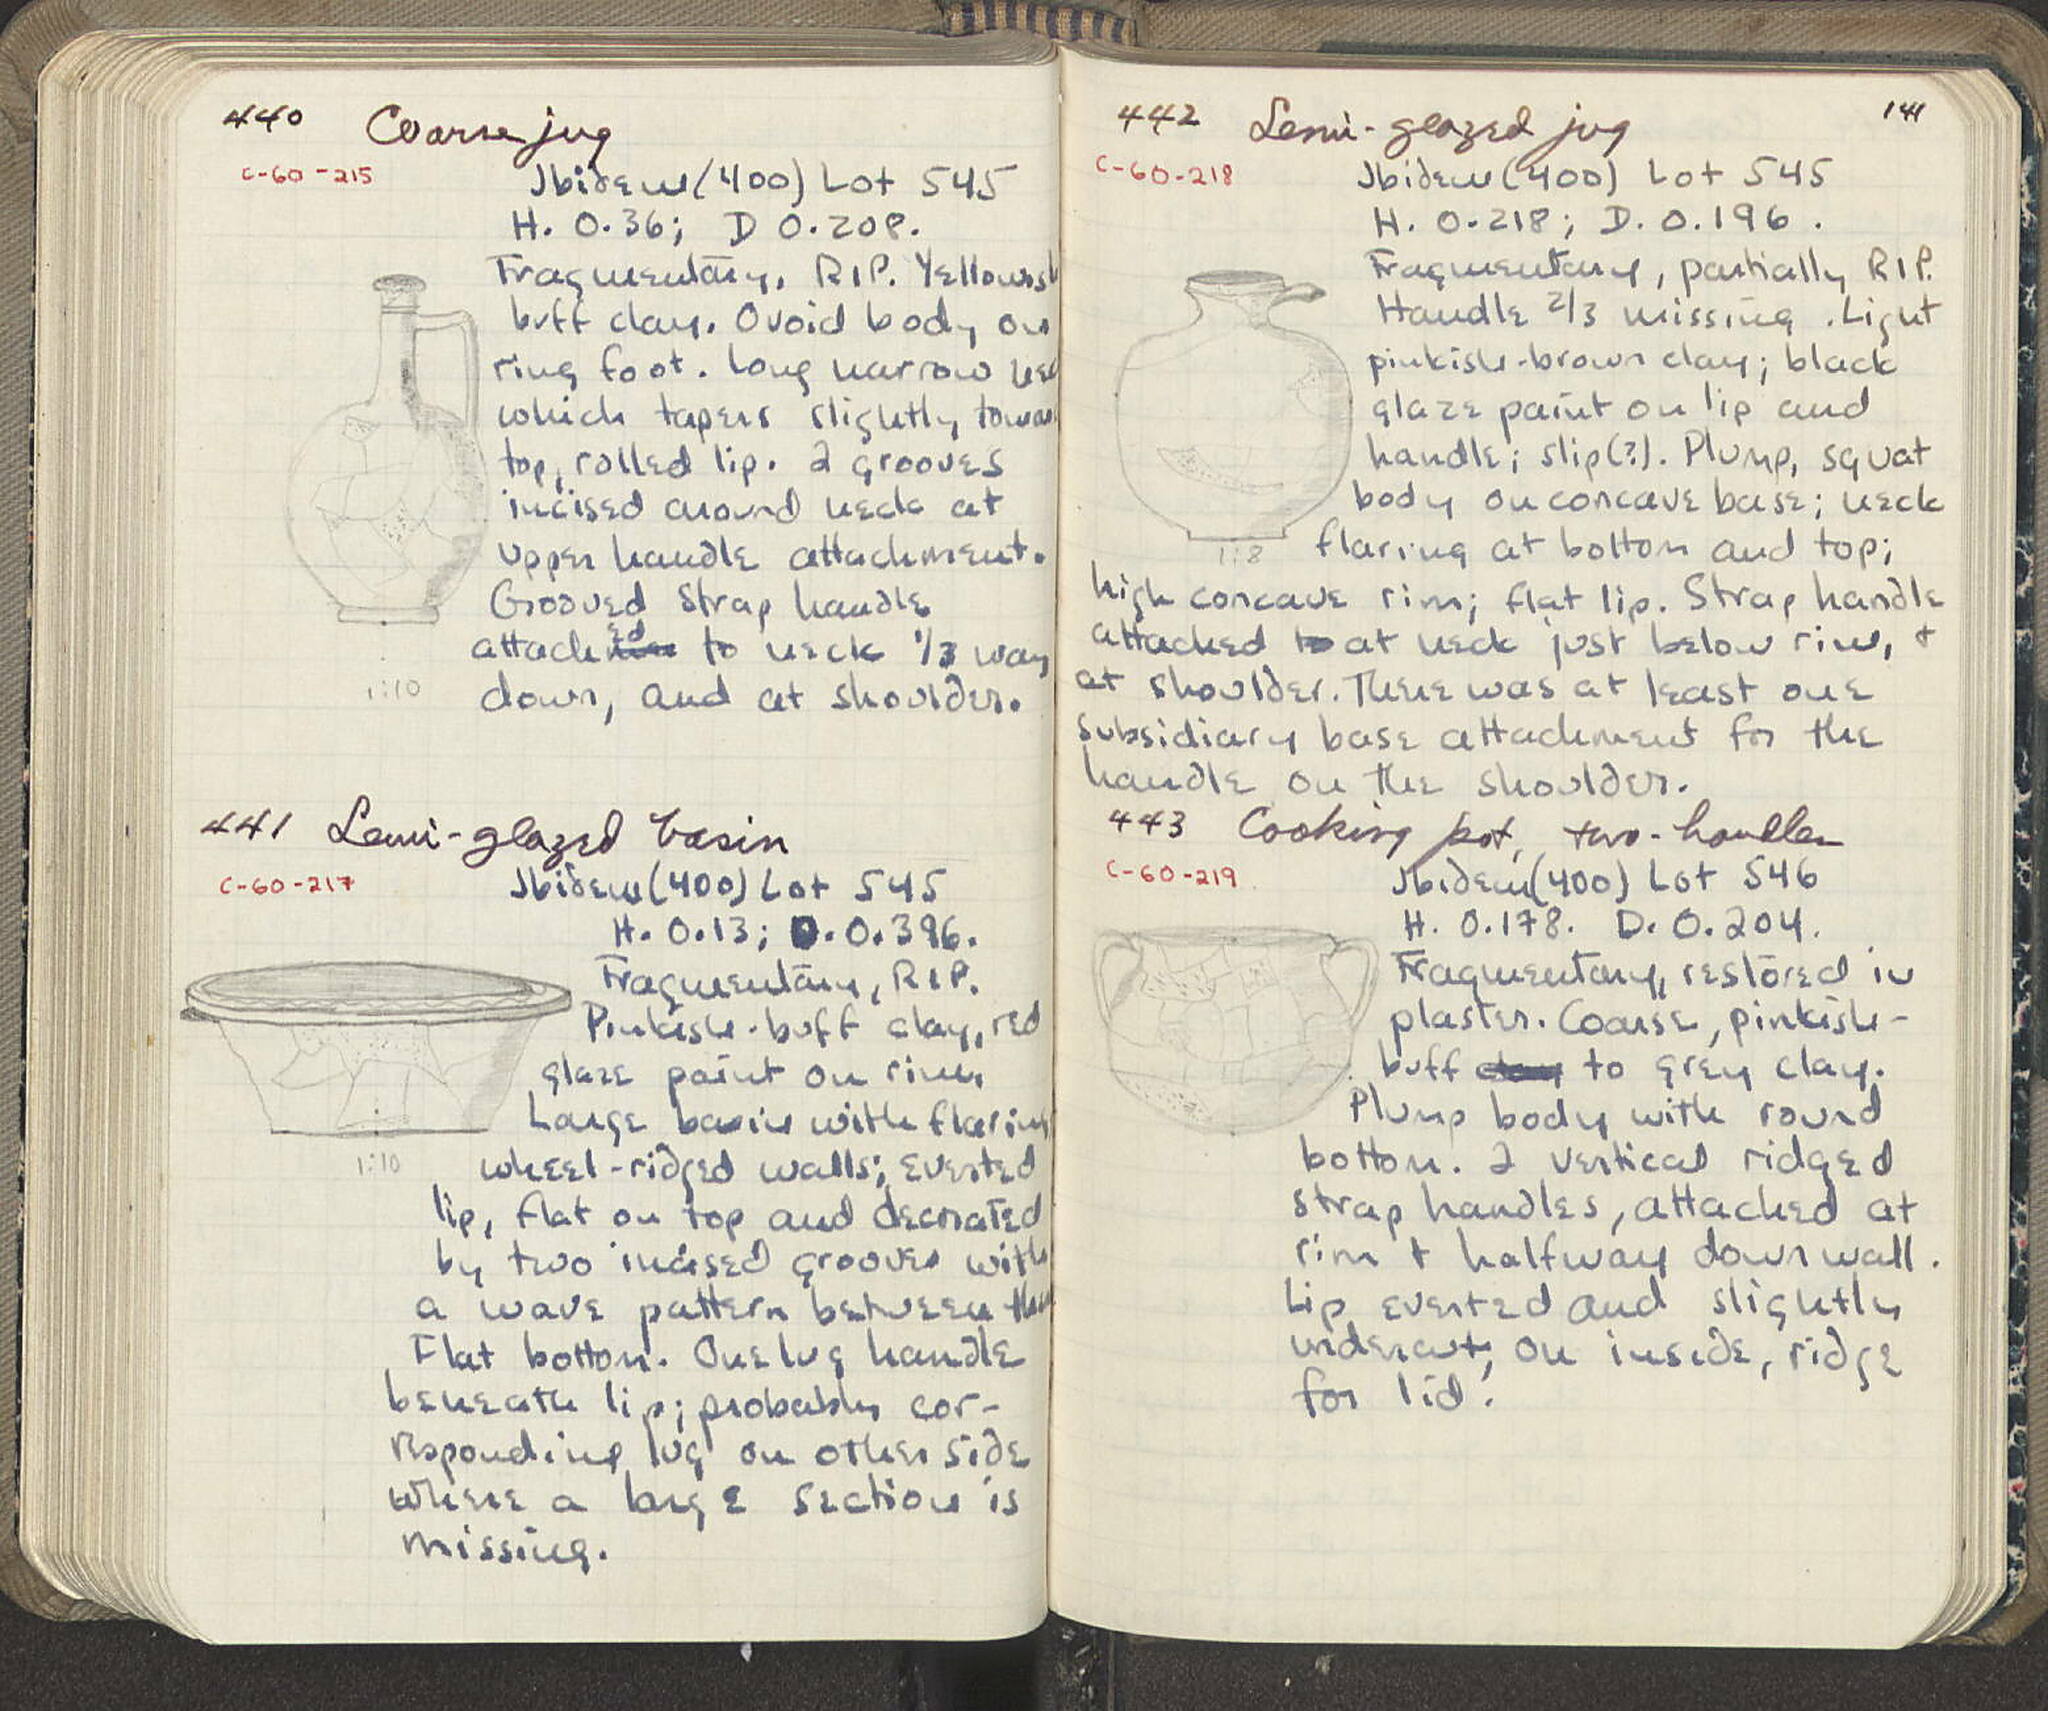 440 Coarse jug
C-60-215
Ibidem (400) Lot 545
H. 0.36; D 0.208.
Fragmentary, RIP. Yellowish
buff clay. Ovoid body on
ring foot. Long narrow nec
which tapers slightly towar
top, rolled lip. 2 grooves
incised around neck at
upper handle attachment.
Grooved strap handle
attached to neck 1/3 way
down, and at shoulder.
1:10
441 Semi-glazed basin
C-60-217
Ibidem (400) Lot 545
H. 0.13; D. 0.396.
Fragmentary, RIP.
Pinkish-buff clay, red
glaze paint on rim.
Large basin with flaring
wheel-ridged walls; everted
lip, flat on top and decorated
by two incised grooves with
a wave pattern between them
Flat bottom. One lug handle
beneath lip; probably cor-
responding lug on other side
where a large section is
missing.
1:10
141
442 Semi-glazed jug
C-60-218
Ibidem (400) Lot 545
H. 0.218; D. 0.196.
Fragmentary, partially RIP.
Handle 2/3 missing. Light
pinkish-brown clay; black
glaze paint on lip and
handle; slip(?). Plump, squat
body on concave base; neck
flaring at bottom and top;
high concave rim; flat lip. Strap handle
attached to at neck just below rim, +
at shoulder. There was at least one
subsidiary base attachment for the
handle on the shoulder.
1:8
443 Cooking pot, two-handler
C-60-219
Ibidem (400) Lot 546
H. 0.178. D. 0.204.
Fragmentary, restored in
plaster. Coarse, pinkish-
buff clay to grey clay.
Plump body with round
bottom. 2 vertical ridged
strap handles, attached at
rim + halfway down wall.
Lip everted and slightly
undercut; on inside, ridge
for lid.